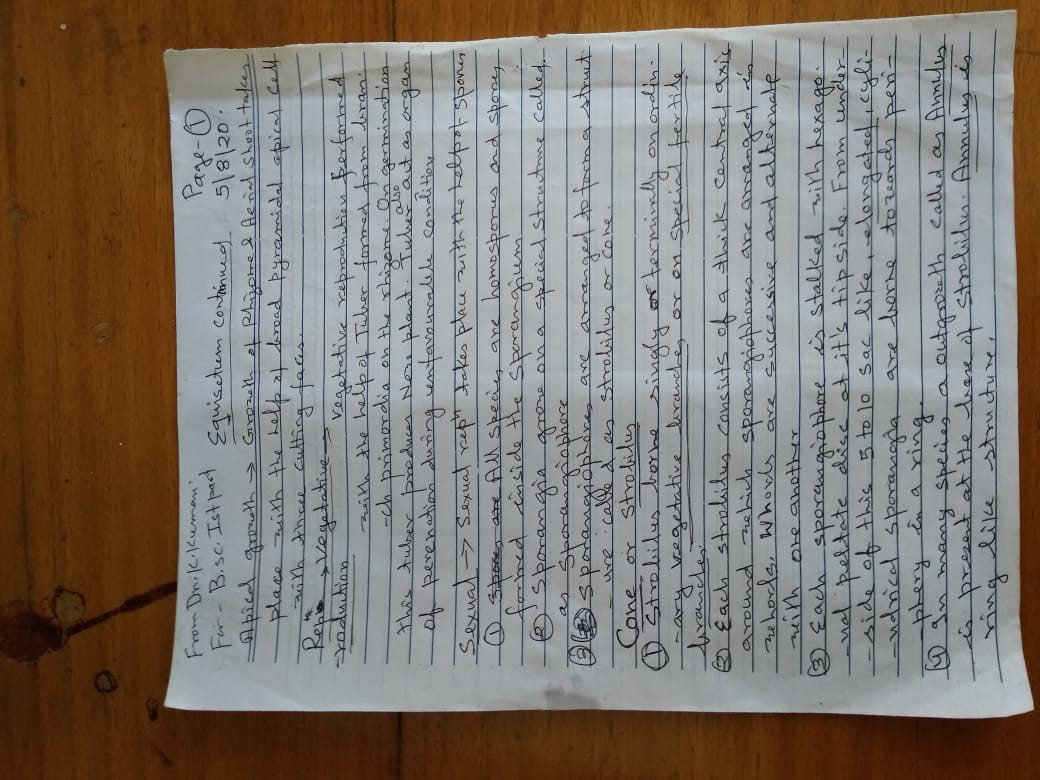 From Dr. K. Kumari Page-①
For - B.sc. Ist part Equisetum continued 5/8/20.
Apical growth → Growth of Rhizome & Aerial shoot takes
place with the help of broad pyramidal apical cell
with three cutting faces.
Repn → Vegetative → Vegetative reprodution performed
-rodution with the help of Tuber formed from bran-
-ch primordia on the rhizome. On germination
this tuber produces New plant. Tuber also act as organ
of perenation during unfavourable condition.
Sexual → Sexual repn takes place with the help of spores
① All species are homosporus and spores
formed inside the Sporangium
② Sporangia grow on a special struture called
as Sporangiophore
③ Sporangiophores are arranged to form a strut
-ure called as Strobilus or Cone.
Cone or Strobilus
① Strobilus borne singly terminally on ordin-
-ary vegetative branches or on special fertile
branches
② Each strobilus consists of a thick central axis
around which sporangiophores are arranged in
whorls. Whorls are successive and alternate
with one another
③ Each sporangiophore is stalked with hexago-
-nal peltate disc at it's tip side. From under-
-side of this 5 to 10 sac like, elongated, cyli-
-ndrical sporangia are borne towards peri-
phery in a ring.
④ In many species a outgrowth called as Annulus
is present at the base of Strobilus. Annulus is
ring like struture.